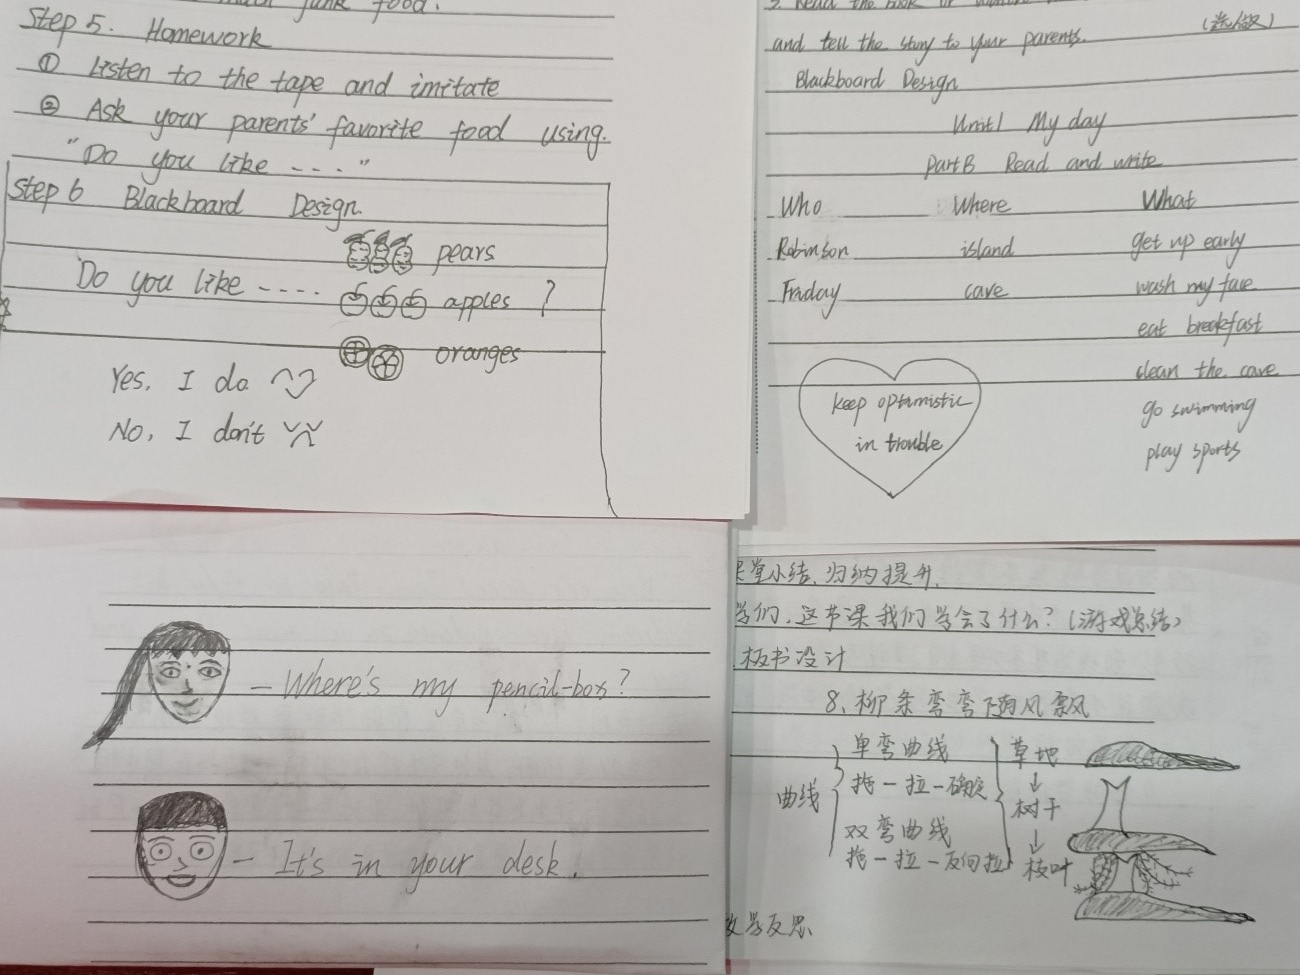 junk food.
Step 5. Homework
① Listen to the tape and imitate
② Ask your parents' favorite food using.
"Do you like ...."
Step 6 Blackboard Design.
pears
Do you like .... apples ?
oranges
Yes, I do
No, I don't
3. Read the book
and tell the story to your parents. (选做)
Blackboard Design
Unit1 My day
Part B Read and write
Who Where What
Robinson island get up early
Friday cave wash my face
eat breakfast
clean the cave
go swimming
play sports
keep optimistic
in trouble
— Where's my pencil-box?
— It's in your desk.
堂小结、归纳提升.
学们,这节课我们学会了什么?(游戏总结)
板书设计
8、柳条弯弯随风飘
曲线
单弯曲线
拖一拉一确定
双弯曲线
拖一拉一反向拉
草地
↓
树干
↓
枝叶
学反思